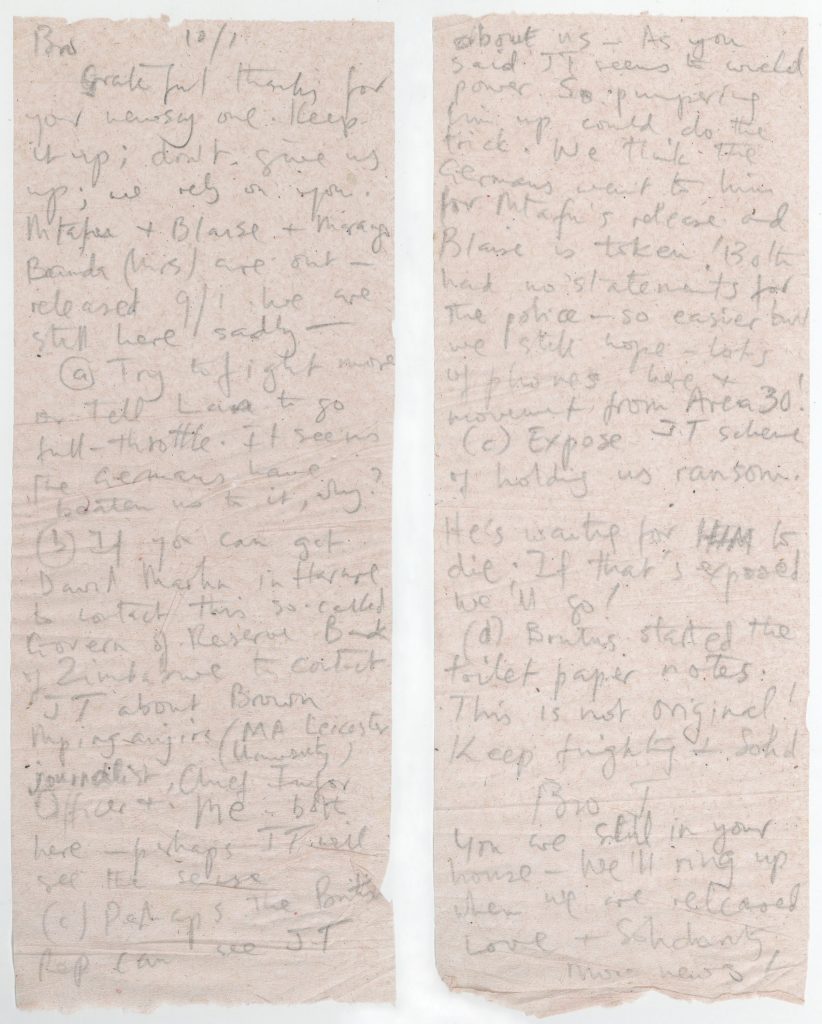 Bro 10/1
Grateful thanks for
your newsy one. Keep
it up; don't give us
up; we rely on you.
Mtafu + Blaise +
Banda (Mrs) are out —
released 9/1. We are
still here sadly —
(a) Try to fight more
or tell to go
full-throttle. It seems
the Germans have
beaten us to it, why?
(b) If you can get
David Martin in Harare
to contact this so-called
Govern of Reserve Bank
of Zimbabwe to contact
JT about Brown
Mpinganjira (MA Leicester
University)
journalist, Chief Infor
Officer + me – both
here – perhaps JT will
see the sense
(c) Perhaps the British
Rep can see JT
about us – As you
said JT seems to wield
power. So pampering
him up could do the
trick. We think the
Germans went to him
for Mtafu's release and
Blaise is token! Both
had no statements for
the police – so easier but
we still hope – lots
of phones here +
movement from Area 30!
(c) Expose JT scheme
of holding us ransom.
He's waiting for HIM to
die; If that's exposed
we'll go!
(d) Brutus started the
toilet paper notes.
This is not original!
Keep fighting + Solid
Bro J
You are still in your
house – We'll ring up
when we are released
Love + Solidarity
more news!